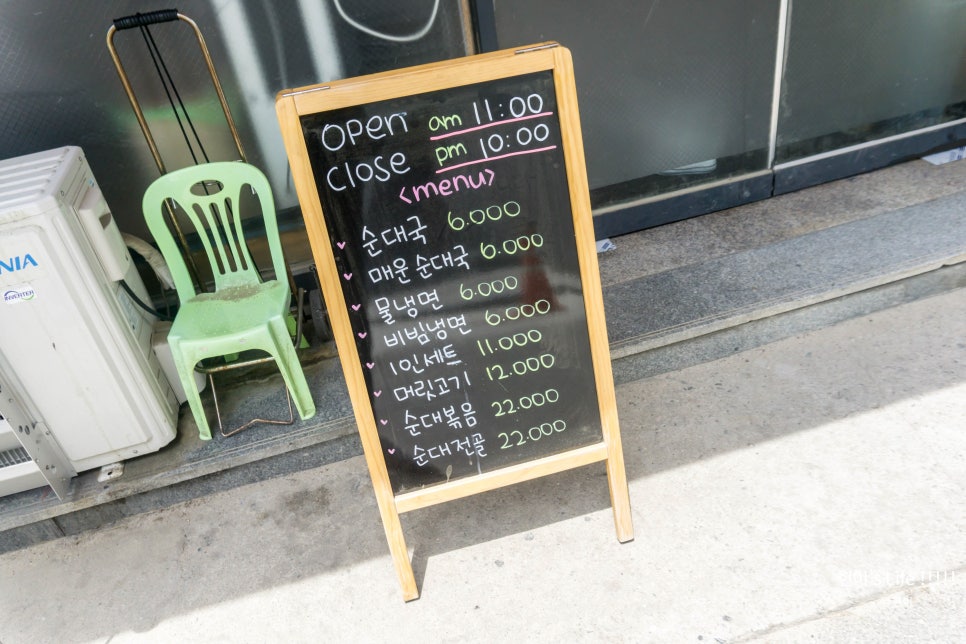 OPen am 11:00
CLOSe pm 10:00
<menu>
순대국 6.000
매운 순대국 6.000
물냉면 6.000
비빔냉면 6.000
1인세트 11.000
머릿고기 12.000
순대볶음 22.000
순대전골 22.000
NIA
INVERTER